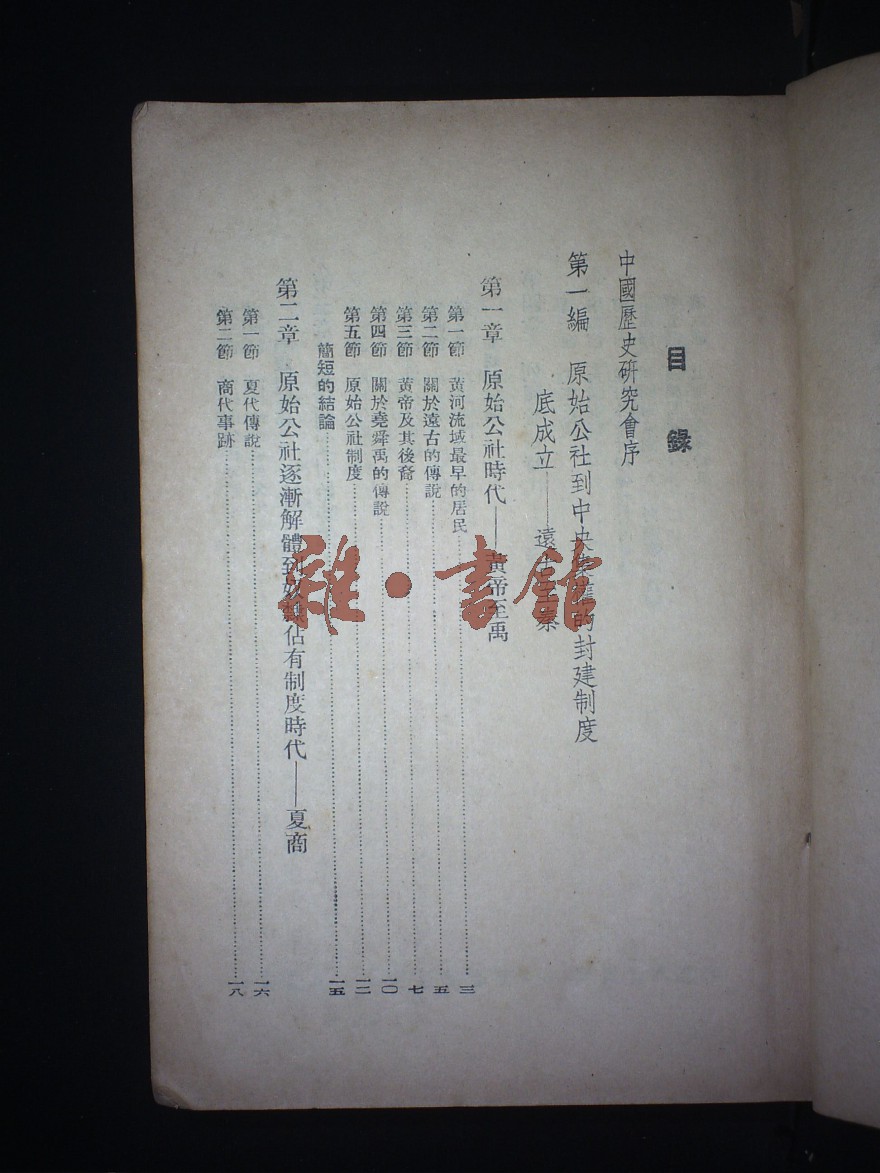 目錄
中國歷史研究會序
第一編 原始公社到中央集權的封建制度
底成立——遠古至秦
第一章 原始公社時代——黃帝至禹
第一節 黃河流域最早的居民…………三
第二節 關於遠古的傳說…………五
第三節 黃帝及其後裔…………七
第四節 關於堯舜禹的傳說…………一〇
第五節 原始公社制度…………一二
簡短的結論…………一五
第二章 原始公社逐漸解體到奴隸佔有制度時代——夏商
第一節 夏代傳說…………一六
第二節 商代事跡…………一八
雜·書館